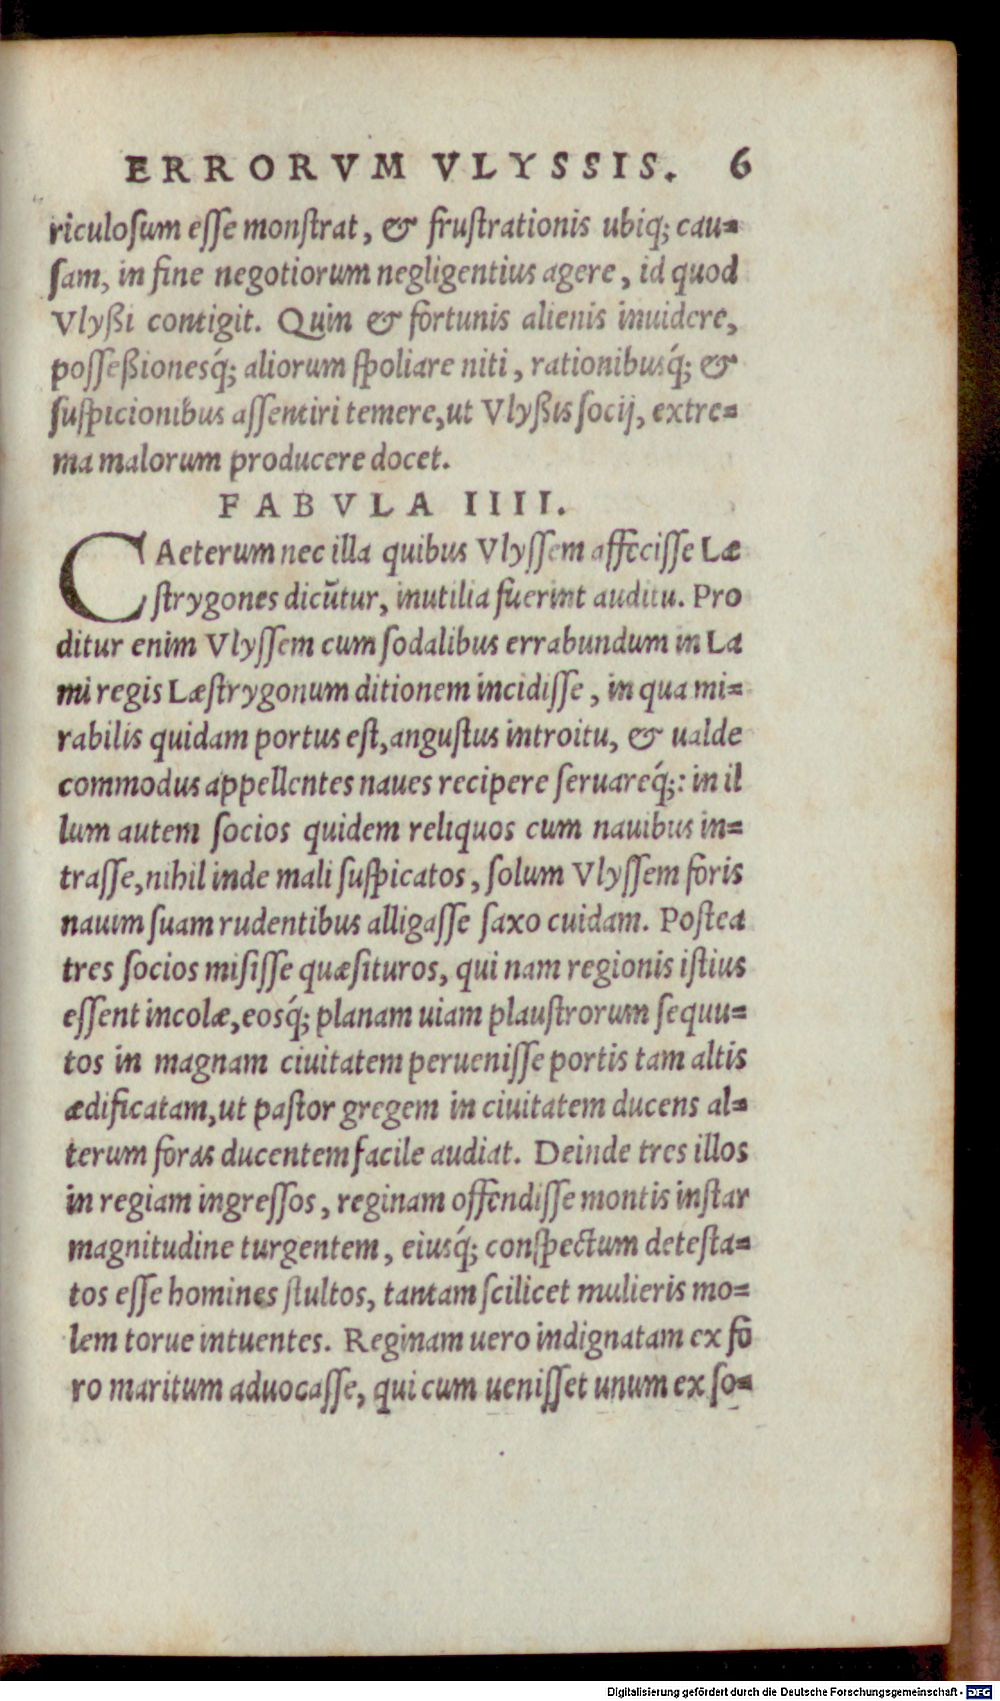 ERRORVM VLYSSIS. 6
riculoſum eſſe monſtrat, & fruſtrationis ubiq; cau-
ſam, in fine negotiorum negligentius agere, id quod
Vlyßi contigit. Quin & fortunis alienis inuidere,
poſſeßionesq́; aliorum ſpoliare niti, rationibusq́; &
ſuſpicionibus aſſentiri temere, ut Vlyßis ſocij, extre-
ma malorum producere docet.
FABVLA IIII.
CAeterum nec illa quibus Vlyſſem affeciſſe Læ
ſtrygones dicũtur, inutilia fuerint auditu. Pro
ditur enim Vlyſſem cum ſodalibus errabundum in La
mi regis Læſtrygonum ditionem incidiſſe, in qua mi-
rabilis quidam portus eſt, anguſtus introitu, & ualde
commodus appellentes naues recipere ſeruareq́;: in il
lum autem ſocios quidem reliquos cum nauibus in-
traſſe, nihil inde mali ſuſpicatos, ſolum Vlyſſem foris
nauim ſuam rudentibus alligaſſe ſaxo cuidam. Poſtea
tres ſocios miſiſſe quæſituros, qui nam regionis iſtius
eſſent incolæ, eosq́; planam uiam plauſtrorum ſequu-
tos in magnam ciuitatem perueniſſe portis tam altis
ædificatam, ut paſtor gregem in ciuitatem ducens al-
terum foras ducentem facile audiat. Deinde tres illos
in regiam ingreſſos, reginam offendiſſe montis inſtar
magnitudine turgentem, eiusq́; conſpectum deteſta-
tos eſſe homines ſtultos, tantam ſcilicet mulieris mo-
lem torue intuentes. Reginam uero indignatam ex fo
ro maritum aduocaſſe, qui cum ueniſſet unum ex ſo-
Digitalisierung gefördert durch die Deutsche Forschungsgemeinschaft - DFG